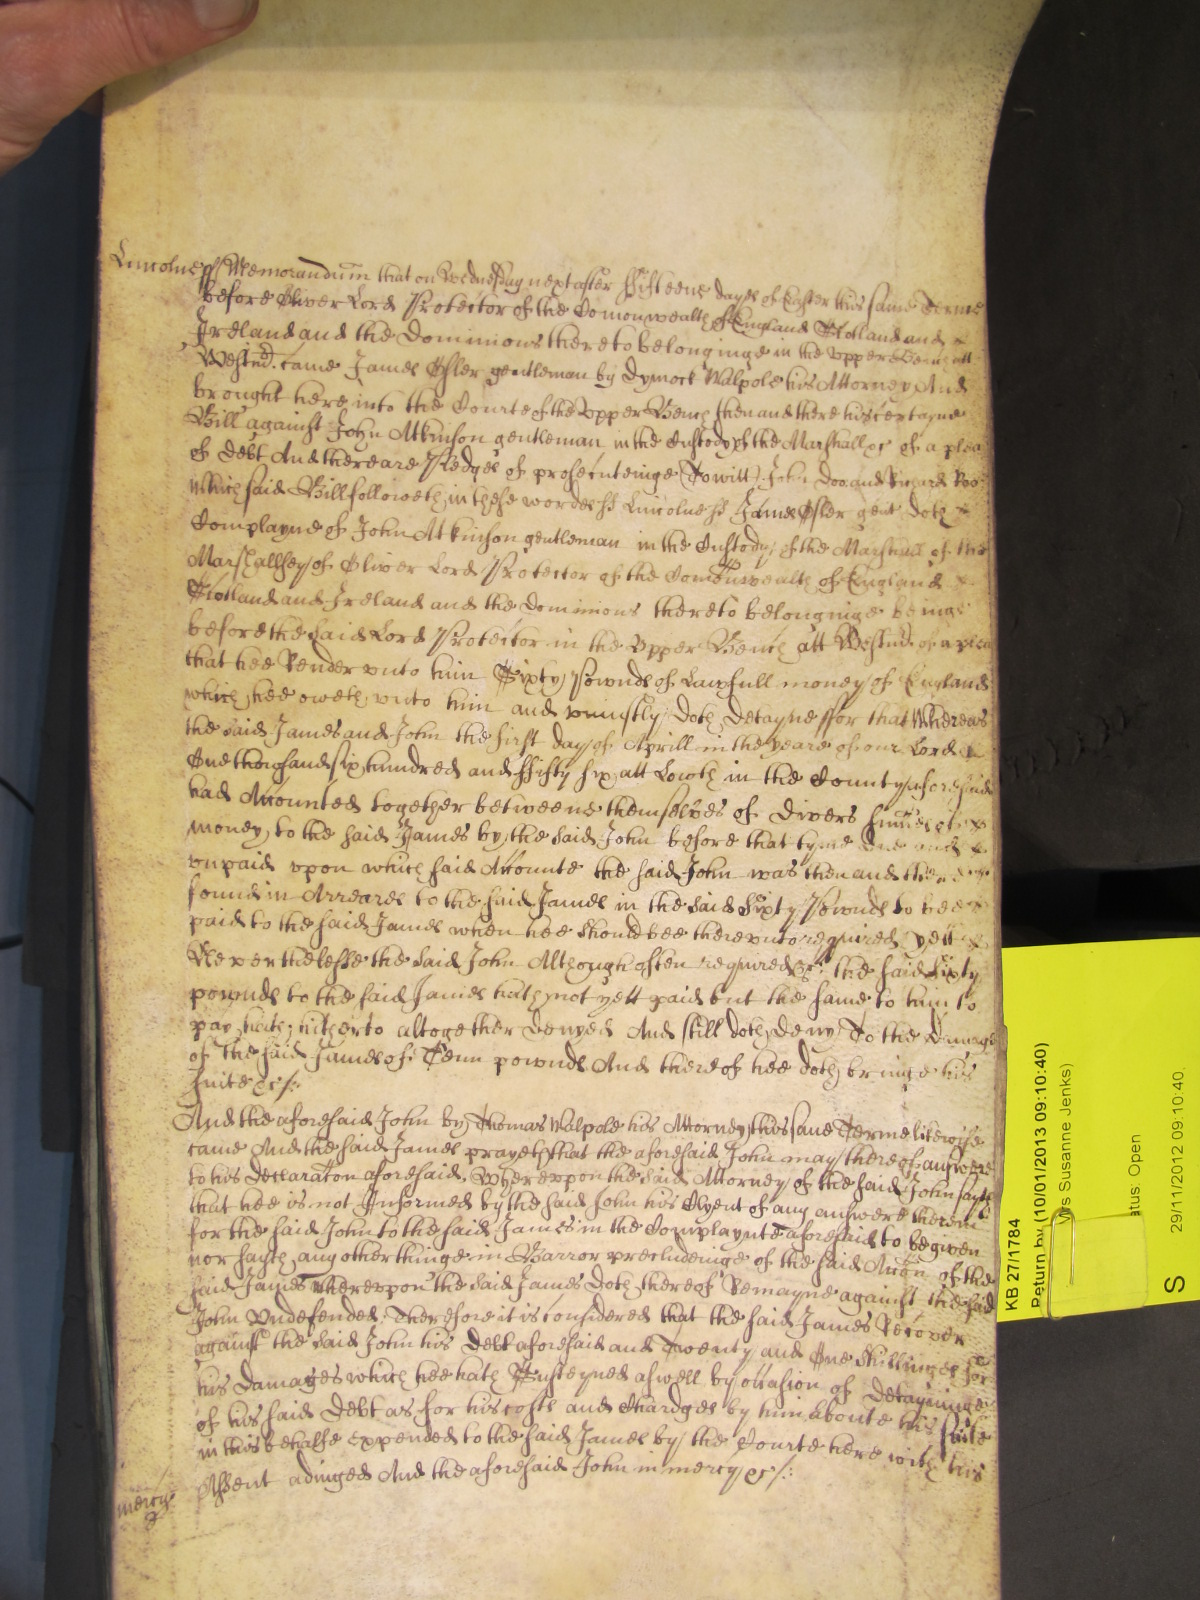 Lincolne ss Memorandum that on Wednesday next after Fifteene dayes of Easter this same Terme
before Oliver Lord Protector of the Comonwealth of England Scotland and
Ireland and the Dominions thereto belonginge in the Upper Bench att
Westmr. came James Osler gentleman by Dymock Walpole his Attorney And
brought here into the Courte of the Upper Bench then and there his certayne
Bill against John Atkinson gentleman in the Custody of the Marshall &c of a plea
of debt And there are Pledges of prosecuteinge (To witt) John Doo and Richard Roo
which said Bill followeth in these wordes ss Lincolne ss James Osler gent doth
Complayne of John Atkinson gentleman in the Custody of the Marshall of the
Marshallsey of Oliver Lord Protector of the Comonwealth of England
Scotland and Ireland and the Dominions thereto belonginge beinge
before the said Lord Protector in the Upper Bench att Westmr. of a plea
that hee Render unto him Sixty Pownds of Lawfull money of England
which hee oweth unto him and uniustly doth detayne ffor that Whereas
the said James and John the first day of Aprill in the yeare of our Lord
One thousand six hundred and Fifty six att Lowth in the County aforesaid
had Accounted together betweene themselves of divers summes of
money to the said James by the said John before that tyme due and
unpaid upon which said Accounte the said John was then and there
found in Arreares to the said James in the said Sixty Pownds to bee
paid to the said James when hee should bee thereunto required yett
Neverthelesse the said John Although often required &c the said Sixty
pownds to the said James hath not yett paid but the same to him to
pay hath hitherto altogether denyed And still doth deny To the Damage
of the said James of Tenn pownds And thereof hee doth bringe his
suite &c
And the aforesaid John by Thomas Walpole his Attorney this same Terme likewise
came And the said James prayeth that the aforesaid John may thereof answere
to his declaration aforesaid, Whereupon the said Attorney of the said John sayth
that hee is not Informed by the said John his Clyent of any answere therein
for the said John to the said James in the Complaynte aforesaid to be given
nor sayth any other thinge in Barr or precludeinge of the said Accon of the
said James whereupon the said James doth thereof Remayne against the said
John Undefended, Therefore it is considered that the said James Recover
against the said John his debt aforesaid and Twenty and One shillinges for
his Damages which hee hath Susteyned aswell by occasion of detayninge
of his said debt as for his costs and Chardges by him aboute his suite
in this behalfe expended to the said James by the Courte here with his
Assent adiuged And the aforesaid John in mercy &c
mercy
KB 27/1784
Return by (10/01/2013 09:10:40)
s Susanne Jenks)
atus: Open
S
29/11/2012 09:10:40